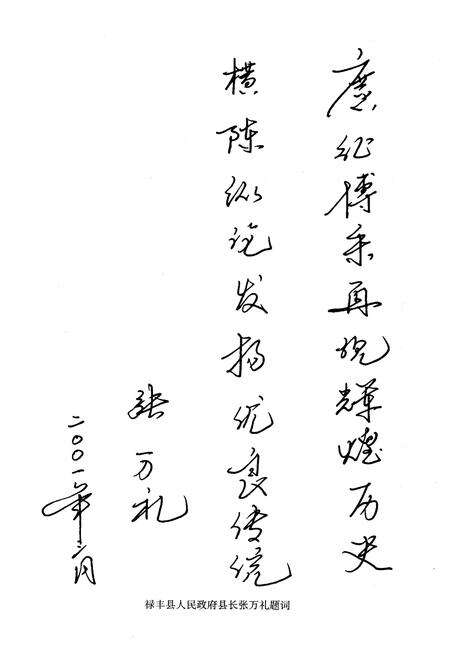 广征博采再现辉煌历史
横陈纵论发扬优良传统
张万礼
二〇〇一年二月
禄丰县人民政府县长张万礼题词